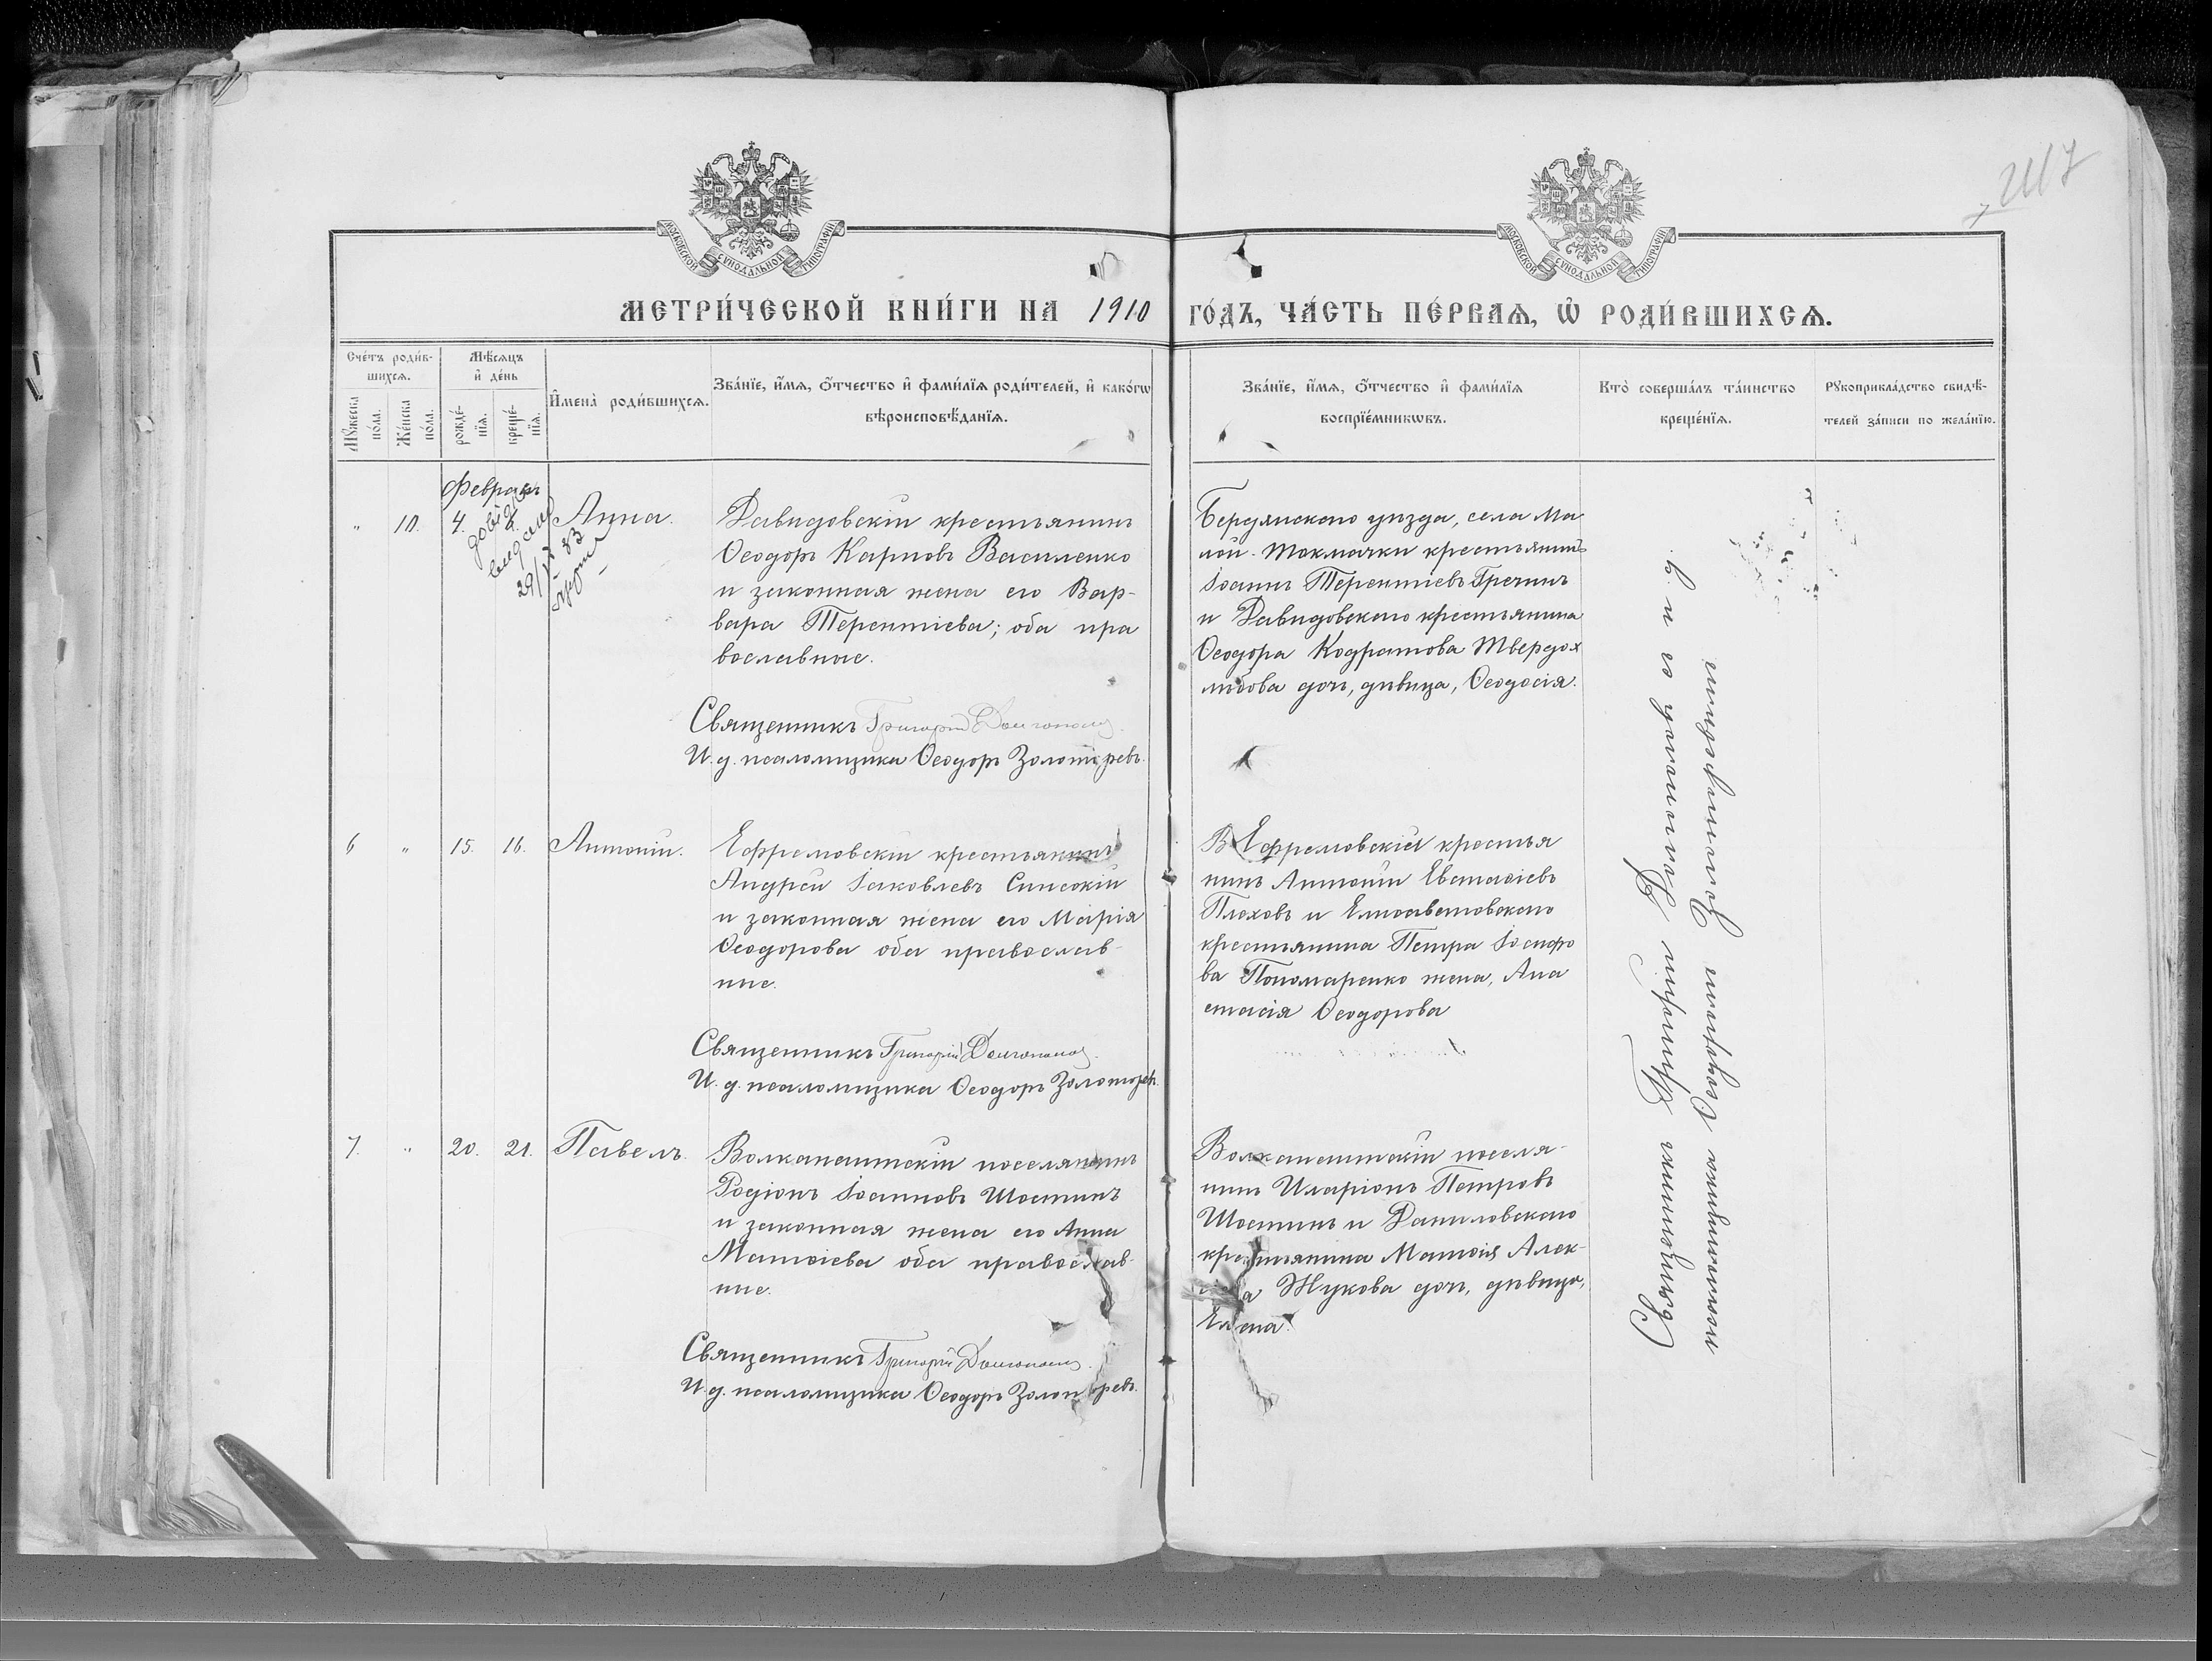 2117
МОСКОВСКОЙ СѴНОДАЛЬНОЙ ТИПОГРАФІИ
МОСКОВСКОЙ СѴНОДАЛЬНОЙ ТИПОГРАФІИ
МЕТРИ́ЧЕСКОЙ КНИ́ГИ НА 1910 ГО́ДЪ, ЧА́СТЬ ПЕ́РВАѦ, Ѡ҆ РОДИ́ВШИХСѦ.
Сче́тъ роди́в-
шихсѧ.
Мꙋ́жеска по́ла.
Же́нска по́ла.
Мѣ́сѧцъ
и҆ де́нь
рожде́-нїѧ.
креще́-нїѧ.
И҆мена̀ роди́вшихсѧ.
Зва́нїе, и҆́мѧ, ѻ҆́тчество и҆ фами́лїѧ роди́телей, и҆ како́гѡ
вѣроисповѣ́данїѧ.
Зва́нїе, и҆́мѧ, ѻ҆́тчество и҆ фами́лїѧ
воспрїе́мникѡвъ.
Кто̀ соверша́лъ та́инство
креще́нїѧ.
Рꙋкоприкла́дство свидѣ́-
телей за́писи по жела́нїю.
Февраль
" 10. 4. Анна.
29/
Давидовскій крестьянинъ
Ѳеодоръ Карповъ Василенко
и законная жена его Вар-
вара Терентіева; оба пра
вославные.
Священникъ Григорій Долгополъ.
И. д. псаломщика Ѳеодоръ Золотаревъ.
Бердянскаго уѣзда, села Ма
лой-Токмачки крестьянинъ
Іоаннъ Терентіевъ Гречинъ
и Давидовскаго крестьянина
Ѳеодора Кодратова Твердох
либова дочь, дѣвица, Ѳеодосія.
6 " 15. 16. Антоній.
Ефремовскій крестьянинъ
Андрей Іаковлевъ
и законная жена его Марія
Ѳеодорова оба православ-
ные.
Священникъ Григорій Долгополъ.
И. д. псаломщика Ѳеодоръ Золотарев.
Ефремовскій крестья
нинъ Антоній Евстаѳіевъ
Плоховъ и Елисаветовскаго
крестьянина Петра Іосифо
ва Пономаренко жена, Ана
стасія Ѳеодорова
7. " 20. 21. Павелъ.
Волканештскій поселянинъ
Родіонъ Іоанновъ Шостинъ
и законная жена его Анна
Матѳіева оба православ-
ные.
Священникъ Григорій Долгополъ.
И. д. псаломщика Ѳеодоръ Золотаревъ.
Волканештскій поселя-
нинъ Иларіонъ Петровъ
Шостинъ и Даниловскаго
крестьянина Матѳія Алек-
Жукова дочь, дѣвица,
Елена.
Священникъ Григорій Долгополъ съ и. д.
псаломщика Ѳеодоромъ Золотаревымъ